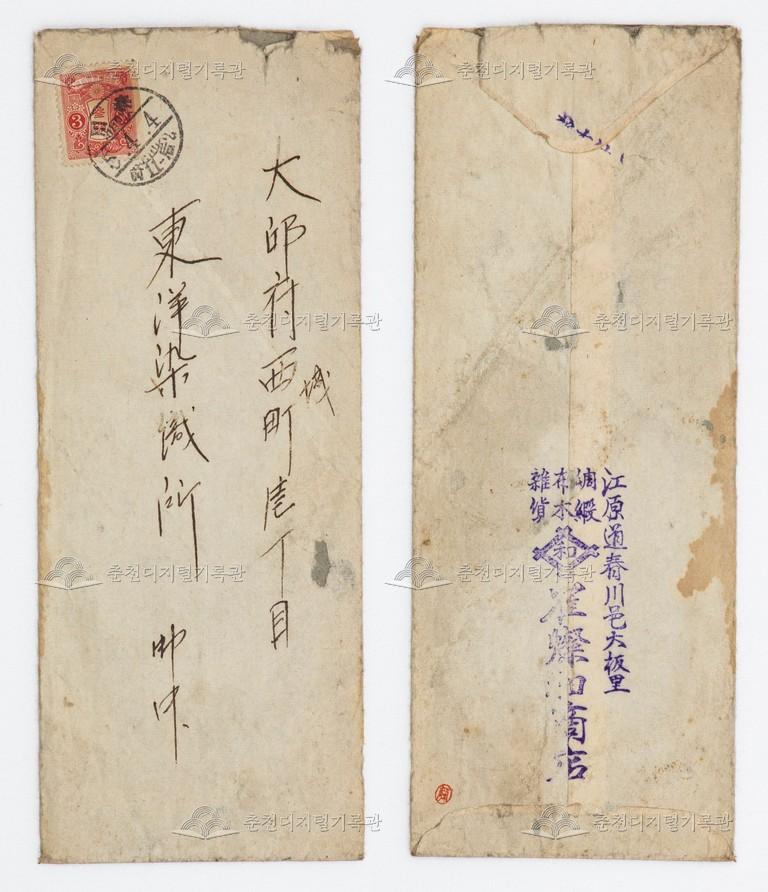 大邱府西城町壹丁目
東洋染織所 御中
3
春川
5.4.4
江原道春川邑大板里
綢緞
布木
雜貨
崔燦和商店
춘천디지털기록관
춘천디지털기록관
춘천디지털기록관
춘천디지털기록관
춘천디지털기록관
춘천디지털기록관
춘천디지털기록관
춘천디지털기록관